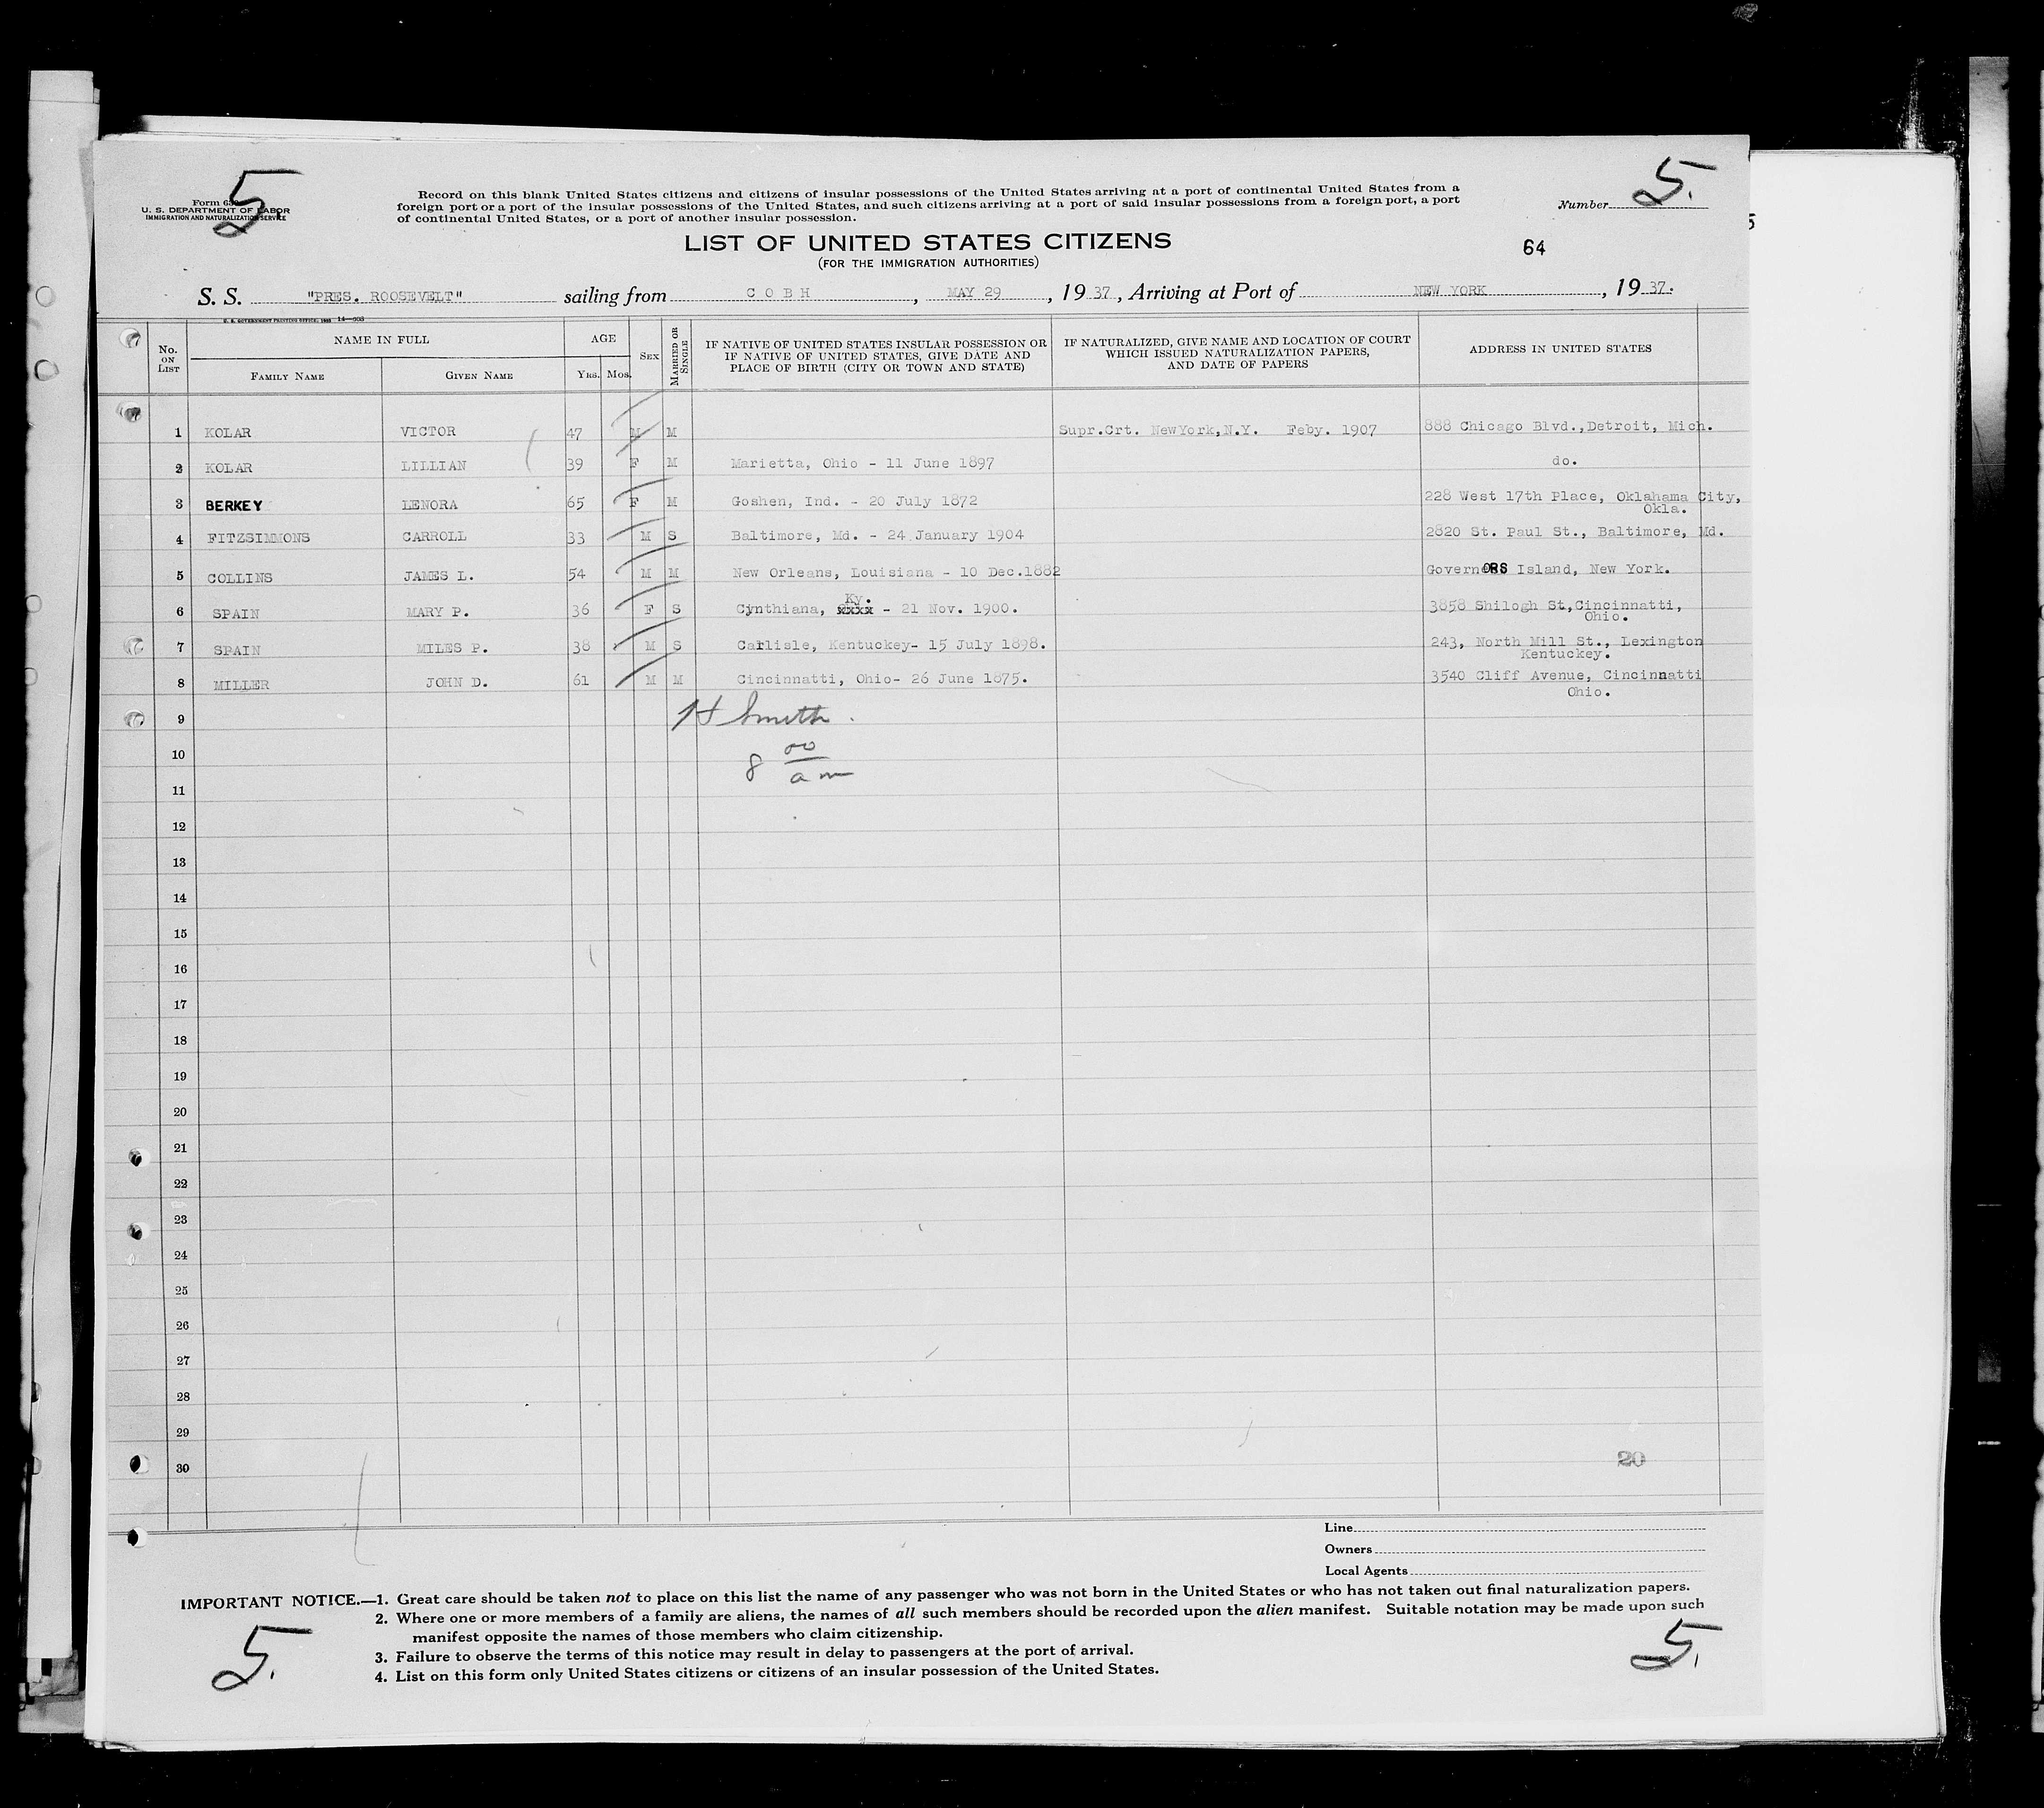 5
5.
Form 630
U. S. DEPARTMENT OF LABOR
IMMIGRATION AND NATURALIZATION SERVICE
Record on this blank United States citizens and citizens of insular possessions of the United States arriving at a port of continental United States from a
foreign port or a port of the insular possessions of the United States, and such citizens arriving at a port of said insular possessions from a foreign port, a port
of continental United States, or a port of another insular possession.
Number
LIST OF UNITED STATES CITIZENS
(FOR THE IMMIGRATION AUTHORITIES)
64
S. S. "PRES. ROOSEVELT" sailing from C O B H, MAY 29, 1937, Arriving at Port of NEW YORK, 1937.
U. S. GOVERNMENT PRINTING OFFICE
No. ON LIST NAME IN FULL AGE SEX MARRIED OR SINGLE IF NATIVE OF UNITED STATES INSULAR POSSESSION OR IF NATIVE OF UNITED STATES, GIVE DATE AND PLACE OF BIRTH (CITY OR TOWN AND STATE) IF NATURALIZED, GIVE NAME AND LOCATION OF COURT WHICH ISSUED NATURALIZATION PAPERS, AND DATE OF PAPERS ADDRESS IN UNITED STATES
FAMILY NAME GIVEN NAME YRS. MOS.
1 KOLAR VICTOR 47 M M Supr.Crt. NewYork,N.Y. Feby. 1907 888 Chicago Blvd.,Detroit, Mich.
2 KOLAR LILLIAN 39 F M Marietta, Ohio - 11 June 1897 do.
3 BERKEY LENORA 65 F M Goshen, Ind. - 20 July 1872 228 West 17th Place, Oklahama City,
Okla.
4 FITZSIMMONS CARROLL 33 M S Baltimore, Md. - 24 January 1904 2820 St. Paul St., Baltimore, Md.
5 COLLINS JAMES L. 54 M M New Orleans, Louisiana - 10 Dec.1882 GovernORS Island, New York.
Ky.
6 SPAIN MARY P. 36 F S Cynthiana, xxxx - 21 Nov. 1900. 3858 Shilogh St,Cincinnatti,
Ohio.
7 SPAIN MILES P. 38 M S Carlisle, Kentuckey- 15 July 1898. 243, North Mill St., Lexington
Kentuckey.
8 MILLER JOHN D. 61 M M Cincinnatti, Ohio- 26 June 1875. 3540 Cliff Avenue, Cincinnatti
Ohio.
9 H Smith.
10 8 00
am
11
12
13
14
15
16
17
18
19
20
21
22
23
24
25
26
27
28
29
30
20
Line
Owners
Local Agents
IMPORTANT NOTICE.—1. Great care should be taken not to place on this list the name of any passenger who was not born in the United States or who has not taken out final naturalization papers.
2. Where one or more members of a family are aliens, the names of all such members should be recorded upon the alien manifest. Suitable notation may be made upon such
manifest opposite the names of those members who claim citizenship.
3. Failure to observe the terms of this notice may result in delay to passengers at the port of arrival.
4. List on this form only United States citizens or citizens of an insular possession of the United States.
5.
5.